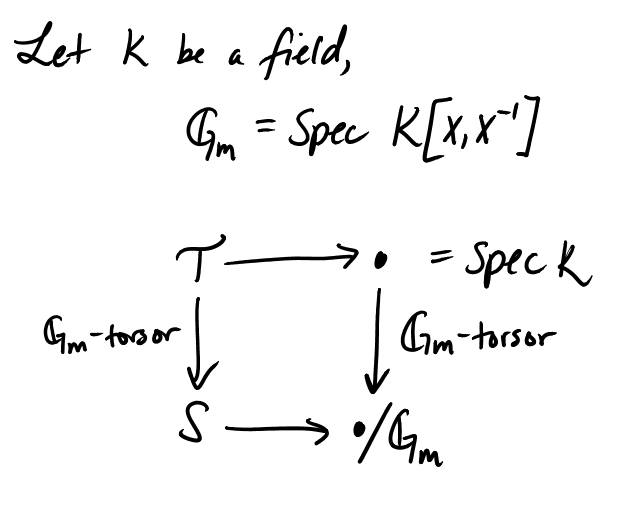 Let K be a field,
𝔾ₘ = Spec K[x, x⁻¹]
T → • = Spec K
𝔾ₘ-torsor ↓ ↓ 𝔾ₘ-torsor
S → •/𝔾ₘ